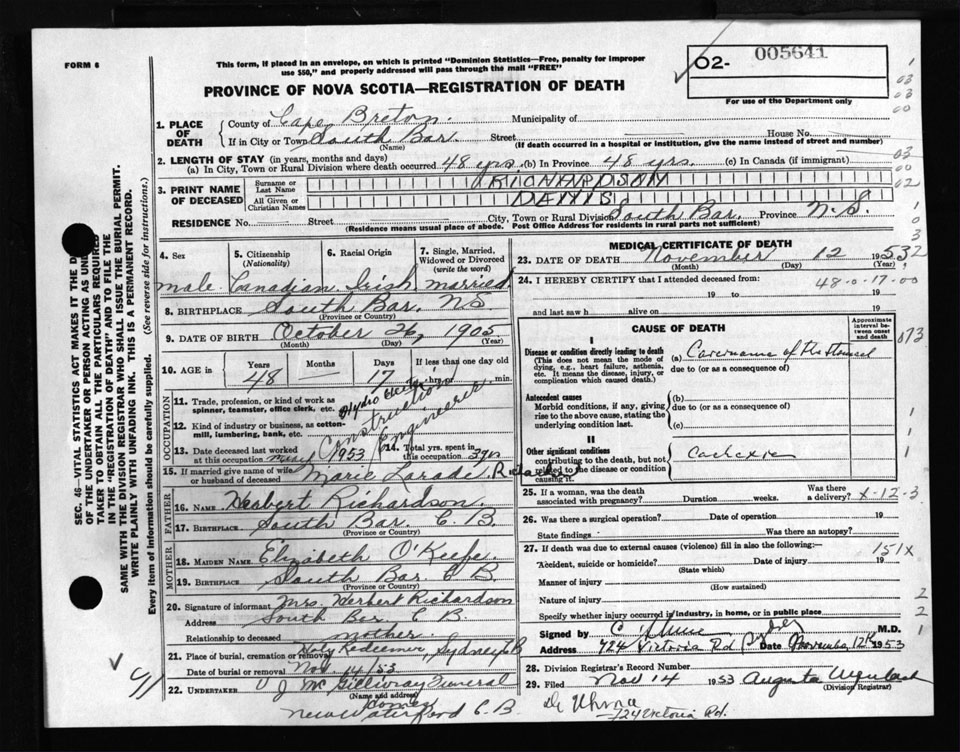 FORM 6
This form, if placed in an envelope, on which is printed "Dominion Statistics—Free, penalty for improper
use $50," and properly addressed will pass through the mail "FREE"
PROVINCE OF NOVA SCOTIA—REGISTRATION OF DEATH
O2- 005641
For use of the Department only
1. PLACE OF DEATH
County of Cape Breton Municipality of
If in City or Town South Bar Street House No.
(Name) (If death occurred in a hospital or institution, give the name instead of street and number)
2. LENGTH OF STAY (in years, months and days)
a) In City, Town or Rural Division where death occurred 48 yrs. (b) In Province 48 yrs. (c) In Canada (if immigrant)
3. PRINT NAME OF DECEASED
Surname or Last Name RICHARDSON
All Given or Christian Names
RESIDENCE No. Street City, Town or Rural Division South Bar. Province N.S.
(Residence means usual place of abode. Post Office Address for residents in rural parts not sufficient)
4. Sex 5. Citizenship (Nationality) 6. Racial Origin 7. Single, Married, Widowed or Divorced (write the word)
male. Canadian Irish married
8. BIRTHPLACE South Bar. NS
(Province or Country)
9. DATE OF BIRTH October 26, 1905
(Month) (Day) (Year)
10. AGE in Years Months Days If less than one day old
48 — 17 hrs. min.
OCCUPATION
11. Trade, profession, or kind of work as spinner, teamster, office clerk, etc. Hydro
12. Kind of industry or business, as cotton-mill, lumbering, bank, etc. Construction Engineers
13. Date deceased last worked at this occupation 1953
14. Total yrs. spent in this occupation 3 yrs
15. If married give name of wife or husband of deceased Marie
FATHER
16. Name Herbert Richardson
17. Birthplace South Bar. C.B.
(Province or Country)
MOTHER
18. MAIDEN NAME Elizabeth O'Keefe
19. BIRTHPLACE South Bar. C B.
(Province or Country)
20. Signature of informant Mrs Herbert Richardson
Address South Bar C B.
Relationship to deceased mother.
21. Place of burial, cremation or removal Holy Redeemer, Sydney CB
Date of burial or removal Nov. 14/53
22. UNDERTAKER J McGillivray Funeral Home
(Name and address)
New Waterford C.B.
MEDICAL CERTIFICATE OF DEATH
23. DATE OF DEATH November 12 1953
(Month) (Day) (Year)
24. I HEREBY CERTIFY that I attended deceased from: 48-0-17-00
19 to 19
and last saw h alive on 19
CAUSE OF DEATH
Approximate interval between onset and death
I
Disease or condition directly leading to death (a)
(This does not mean the mode of dying, e.g., heart failure, asthenia, etc. It means the disease, injury, or complication which caused death.)
due to (or as a consequence of)
Antecedent causes
Morbid conditions, if any, giving rise to the above cause, stating the underlying condition last.
(b)
due to (or as a consequence of)
(c)
II
Other significant conditions
contributing to the death, but not related to the disease or condition causing it.
Cachexia
25. If a woman, was the death associated with pregnancy? Duration weeks. Was there a delivery? X-12-3
26. Was there a surgical operation? Date of operation 19
State findings Was there an autopsy?
27. If death was due to external causes (violence) fill in also the following:— 151X
Accident, suicide or homicide? Date of injury 19
(State which)
Manner of injury
(How sustained)
Nature of injury
Specify whether injury occurred in industry, in home, or in public place
Signed by M.D.
Address 724 Victoria Rd Sydney Date November 12th 1953
28. Division Registrar's Record Number
29. Filed Nov 14 1953 Augusta
(Division Registrar)
724 Victoria Rd.
SEC. 46—VITAL STATISTICS ACT MAKES IT THE DUTY
OF THE UNDERTAKER OR PERSON ACTING AS UNDERTAKER
TO OBTAIN ALL THE PARTICULARS REQUIRED
IN THE "REGISTRATION OF DEATH" AND TO FILE THE
SAME WITH THE DIVISION REGISTRAR WHO SHALL ISSUE THE BURIAL PERMIT.
WRITE PLAINLY WITH UNFADING INK. THIS IS A PERMANENT RECORD.
Every item of information should be carefully supplied. (See reverse side for instructions.)